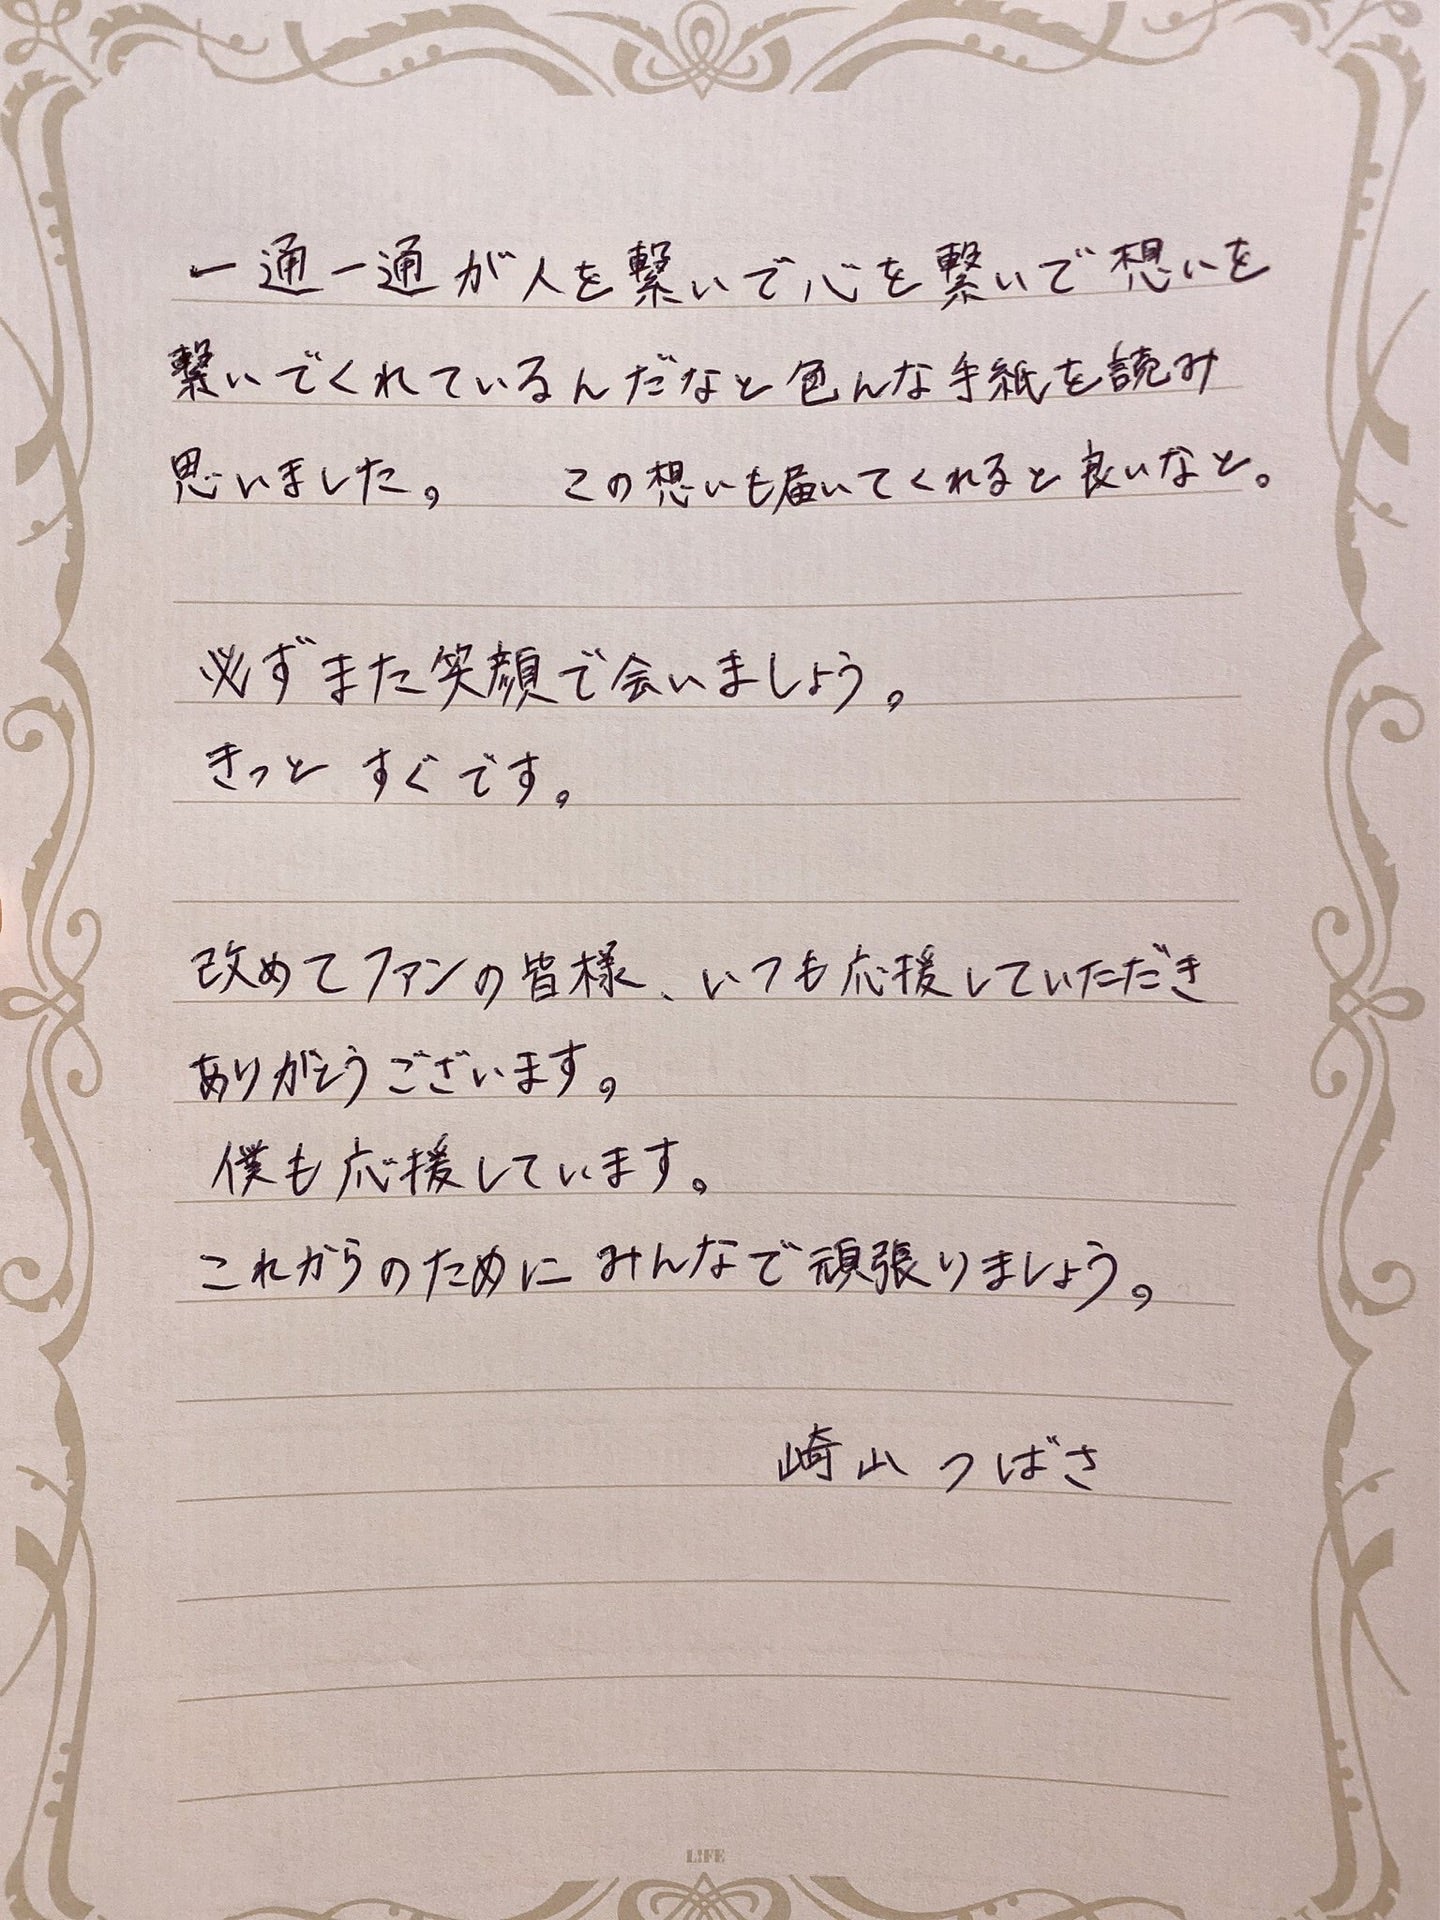 一通一通が人を繋いで心を繋いで想いを
繋いでくれているんだなと色んな手紙を読み
思いました。 この想いも届いてくれると良いなと。
必ずまた笑顔で会いましょう。
きっと すぐです。
改めてファンの皆様、いつも応援していただき
ありがとうございます。
僕も応援しています。
これからのために みんなで頑張りましょう。
崎山 つばさ
L!FE